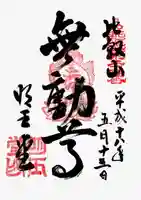 比叡山
平成十八年
五月十三日
無動尊
明王堂